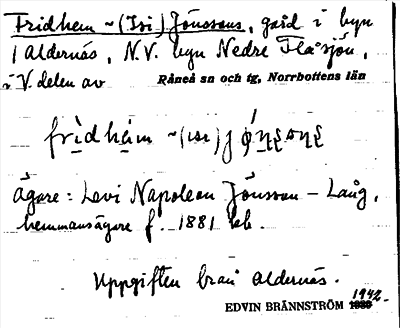 Fridhem ~ (Isi) Jönssons, gård i byn
1 Aldernäs, N.V. byn Nedre Flåsjön,
i V. delen av Råneå sn och tg, Norrbottens län
Ägare: Levi Napoleon Jönsson – Lång,
hemmansägare f. 1881
Uppgiften från Aldernäs.
EDVIN BRÄNNSTRÖM 1942